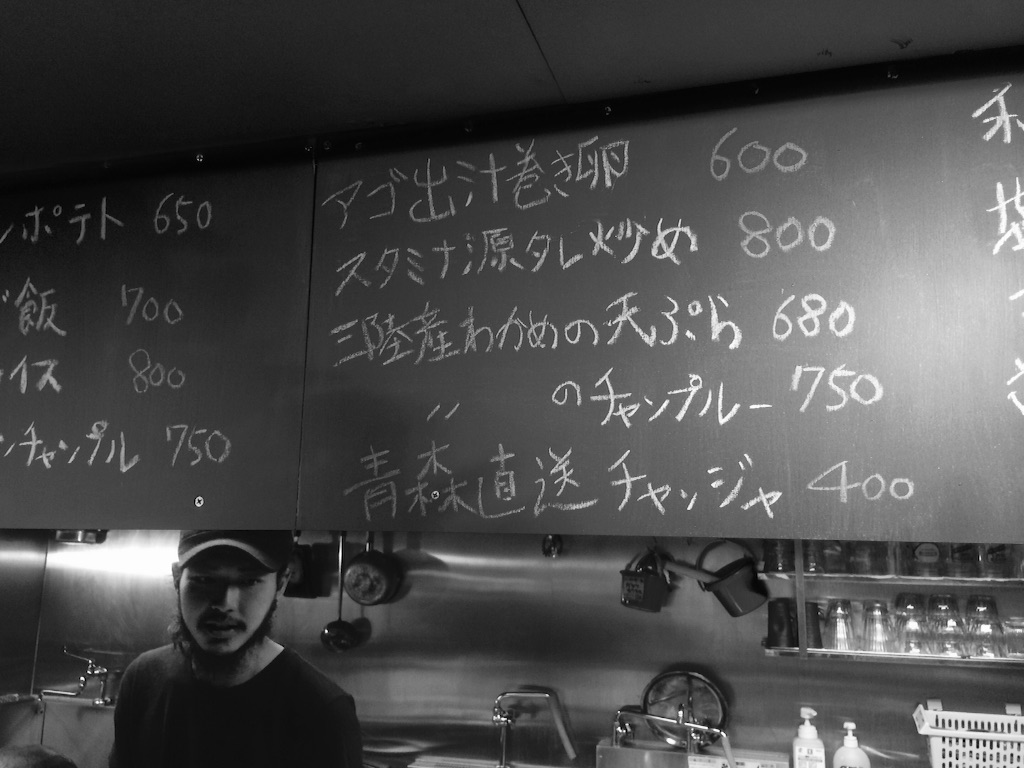 ポテト 650
飯 700
イス 800
チャンプル 750
アゴ出汁巻き卵 600
スタミナ源タレ炒め 800
三陸産わかめの天ぷら 680
〃 のチャンプルー 750
青森直送チャンジャ 400